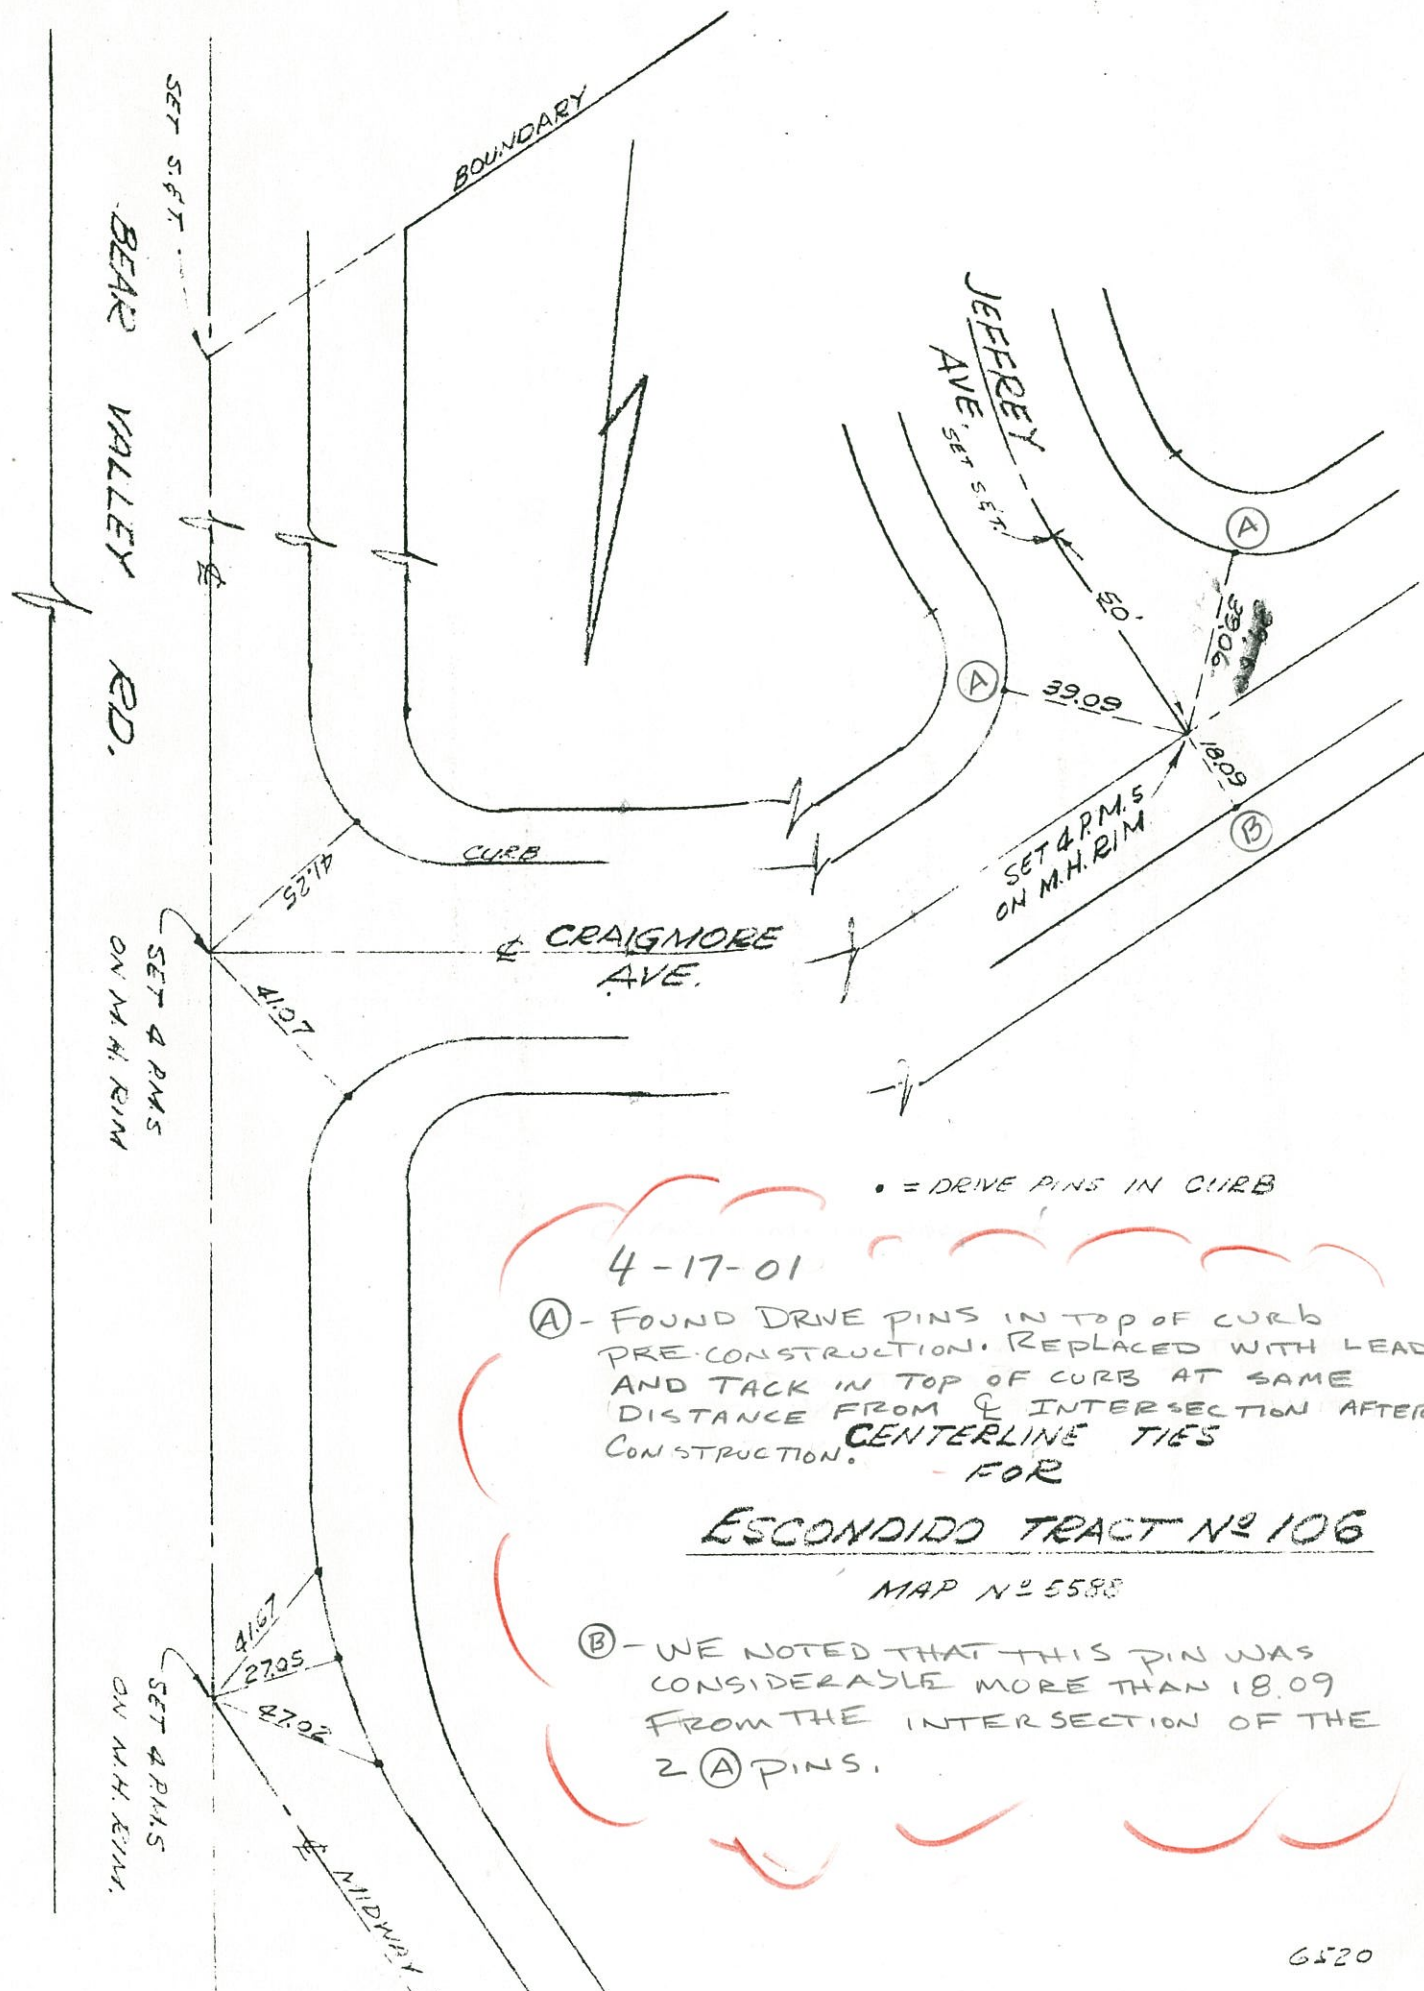 BOUNDARY
SET S.&T.
BEAR VALLEY RD.
℄
JEFFREY
AVE.
SET S.&T.
50'
A
39.06
A
39.09
18.09
B
SET 4 P.M.S
ON M.H. RIM
CURB
41.25
℄ CRAIGMORE
AVE.
41.07
SET 4 P.M.S
ON M.H. RIM
• = DRIVE PINS IN CURB
4-17-01
A - FOUND DRIVE PINS IN TOP OF CURB
PRE-CONSTRUCTION. REPLACED WITH LEAD
AND TACK IN TOP OF CURB AT SAME
DISTANCE FROM ℄ INTERSECTION AFTER
CONSTRUCTION.
CENTERLINE TIES
FOR
ESCONDIDO TRACT Nº 106
MAP Nº 5588
B - WE NOTED THAT THIS PIN WAS
CONSIDERABLE MORE THAN 18.09
FROM THE INTERSECTION OF THE
2 A PINS.
41.67
27.05
47.02
SET 4 P.M.S
ON M.H. RIM.
℄ MIDWAY
6520